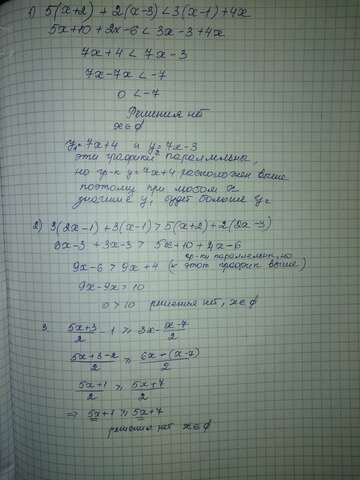 1) 5(x+2) + 2(x-3) < 3(x-1) + 4x
5x+10 + 2x-6 < 3x-3+4x
7x+4 < 7x-3
7x-7x < -7
0 < -7
Решения нет
x∈∅
y₁=7x+4 и y₂=7x-3
эти графики параллельны,
но гр-к y=7x+4 расположен выше
поэтому при любом x
значение y₁ будет больше y₂
2) 3(2x-1) + 3(x-1) > 5(x+2) + 2(2x-3)
6x-3 + 3x-3 > 5x+10 + 4x-6
9x-6 > 9x+4 (гр-ки параллельны, но этот график выше)
9x-9x > 10
0 > 10 решения нет, x∈∅
3. (5x+3)/2 - 1 ≥ 3x - (x-7)/2
(5x+3-2)/2 ≥ (6x-(x-7))/2
(5x+1)/2 ≥ (5x+7)/2
⇒ 5x+1 ≥ 5x+7
решения нет x∈∅